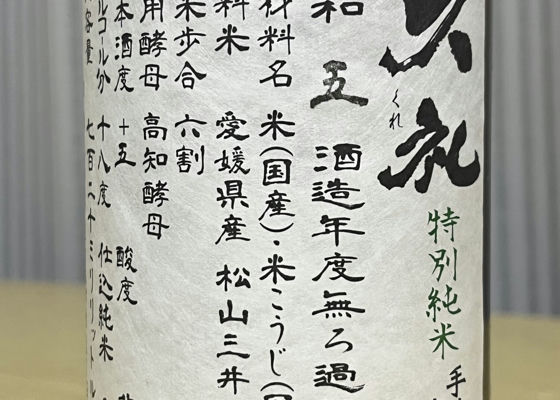 久礼
くれ
特別純米
手
和 五 酒造年度無ろ過
材料名 米(国産)・米こうじ(国
料米 愛媛県産 松山三井
米歩合 六割
用酵母 高知酵母
本酒度 +五 酸度
ルコール分 十八度 仕込純米
容量 七百二十ミリリットル